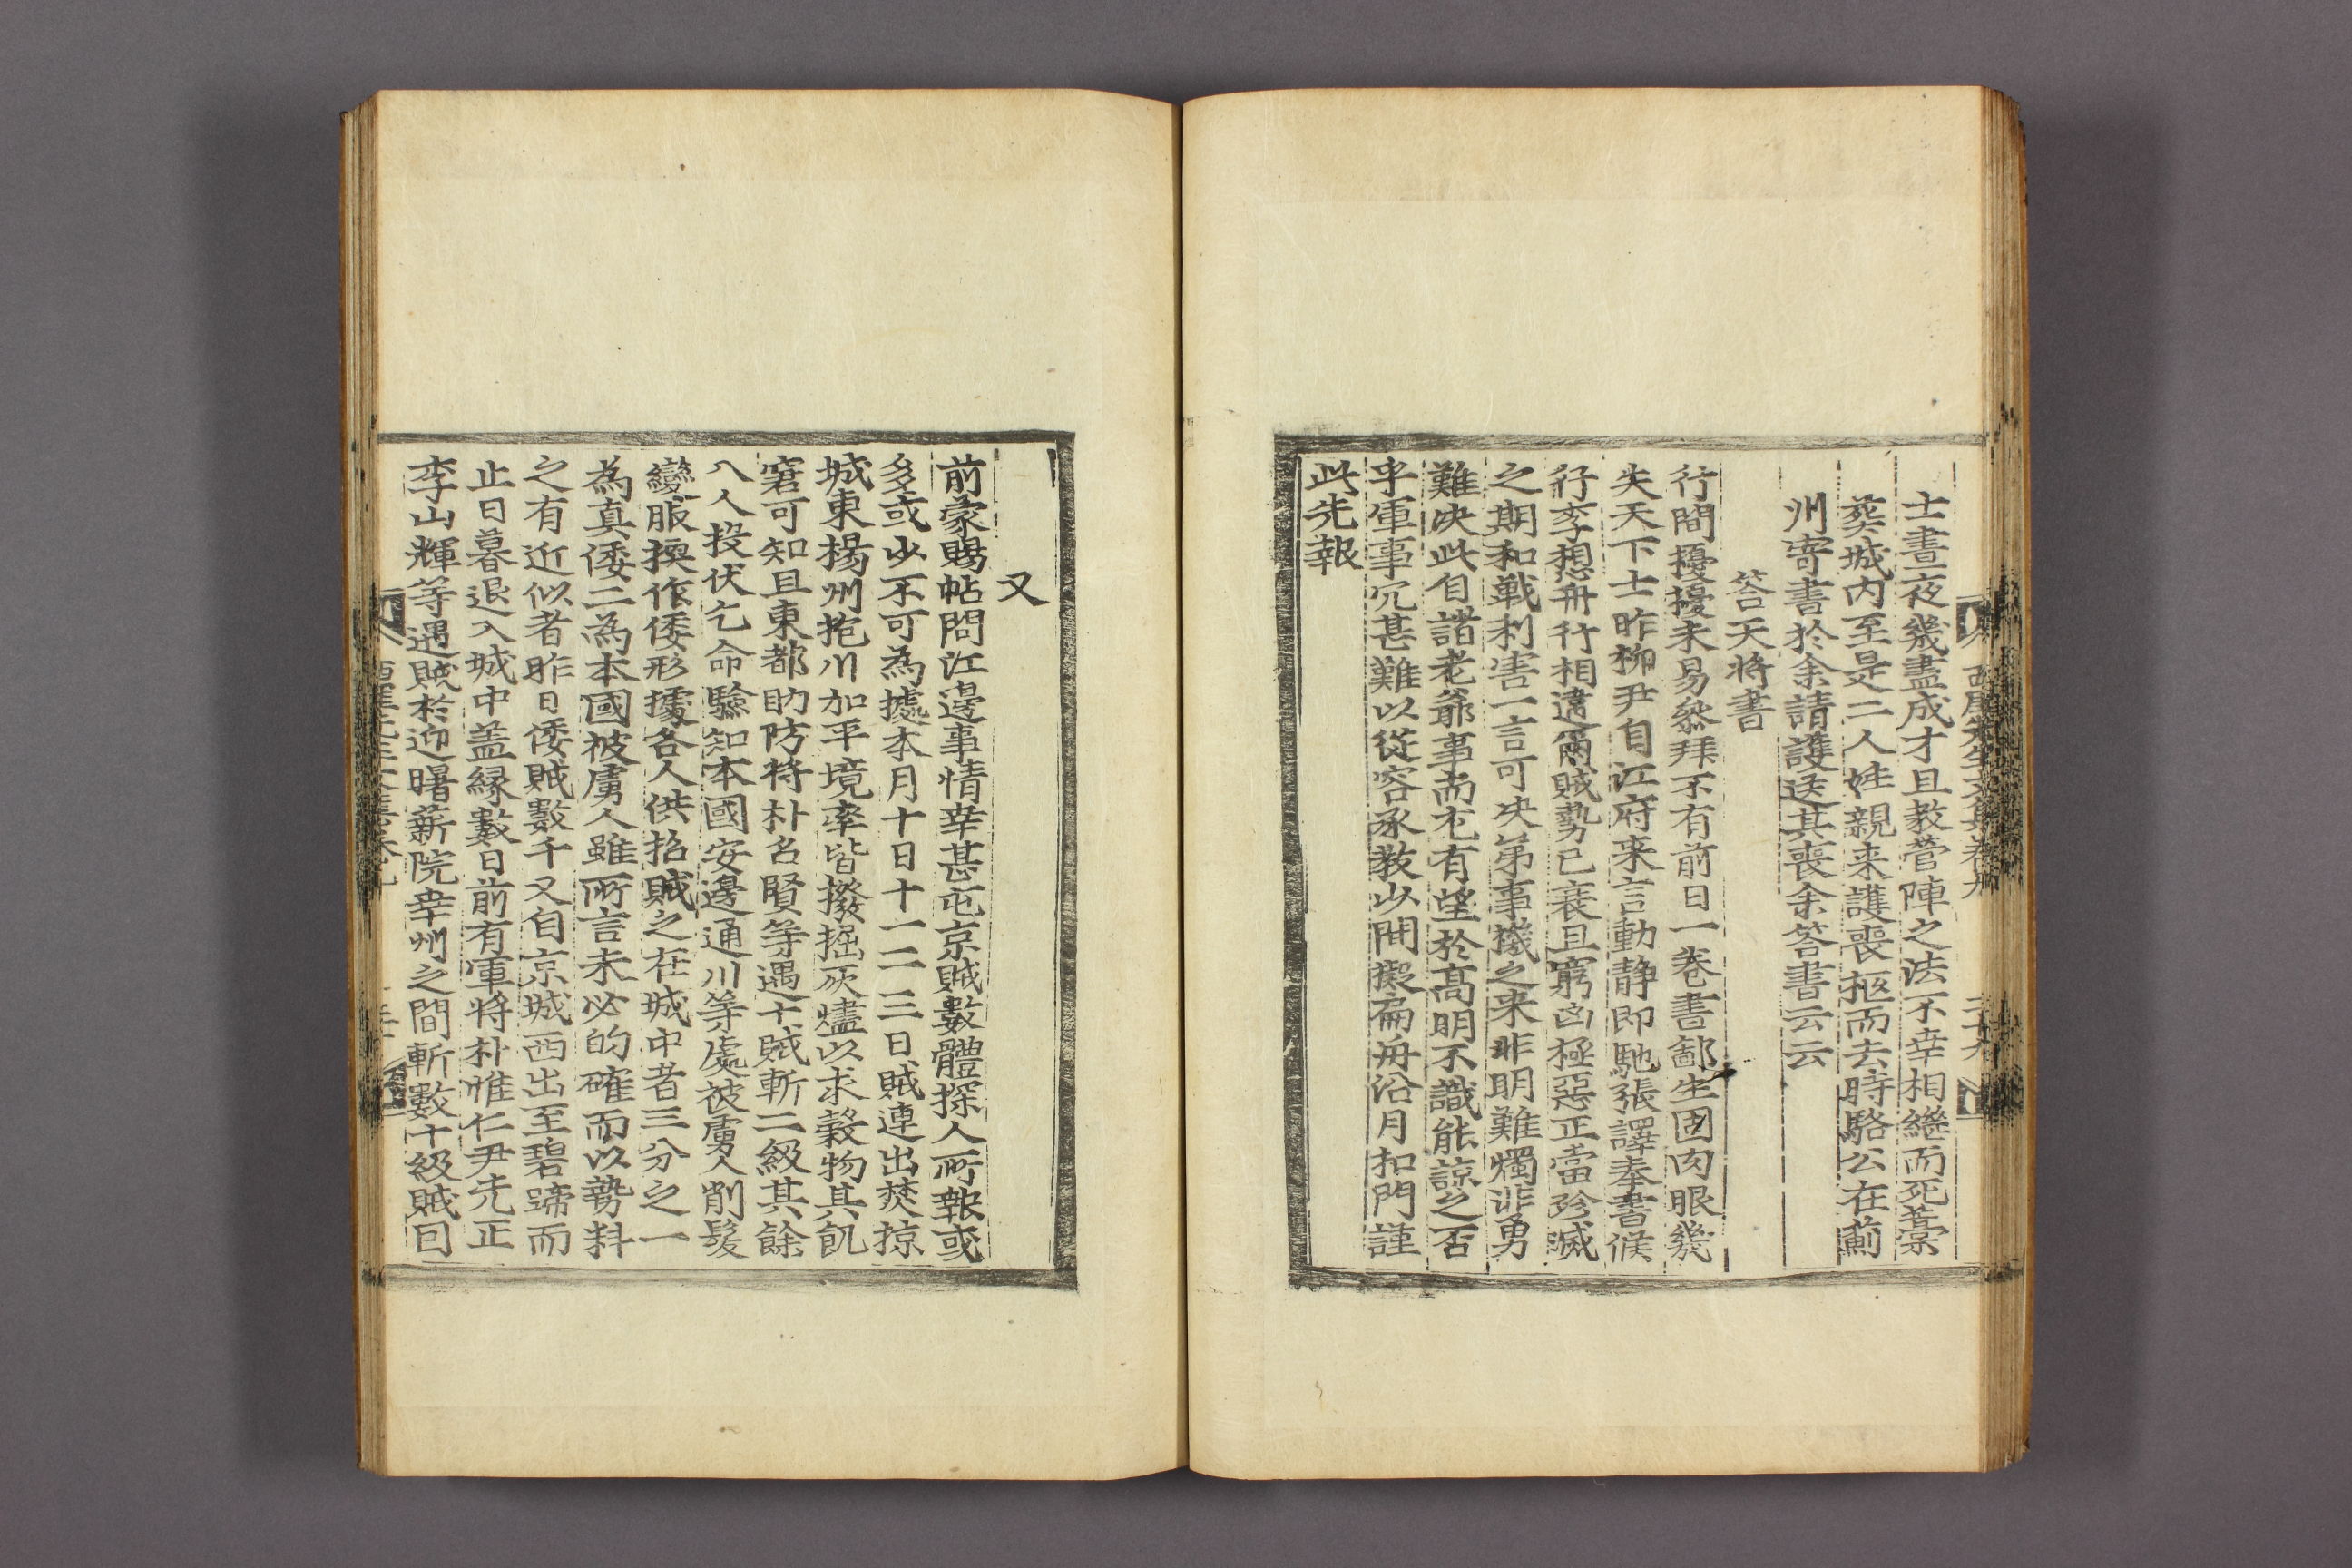 西厓先生文集卷九 二十九
士晝夜幾盡成才且教營陣之法不幸相繼而死藁
葬城内至是二人姪親来護喪柩而去時駱公在薊
州寄書於余請護送其喪余答書云云
答天將書
行間擾擾未易叅拜不有前日一卷書鄙生固肉眼幾
失天下士昨柳尹自江府来言動静即馳張譯奉書候
行李想舟行相違爾賊勢已衰且窮凶極惡正當殄滅
之期和戰利害一言可决第事機之来非明難燭非勇
難决此自諸老爺事而不有望於高明不識能諒之否
乎軍事冗甚難以從容承教少間擬扁舟沿月扣門謹
此先報
又
前蒙賜帖問江邊事情幸甚屯京賊數體探人所報或
多或少不可為據本月十日十一二三日賊連出焚掠
城東楊州抱川加平境率皆撥掘灰燼以求穀物其飢
窘可知且東都助防將朴名賢等遇十賊斬二級其餘
八人投伏乞命驗知本國安邊通川等處被虜人削髮
變服換作倭形據各人供招賊之在城中者三分之一
為真倭二為本國被虜人雖所言未必的確而以勢料
之有近似者昨日倭賊數千又自京城西出至碧蹄而
止日暮退入城中盖縁數日前有軍將朴惟仁尹先正
李山輝等遇賊於迎曙薪院幸州之間斬數十級賊曰